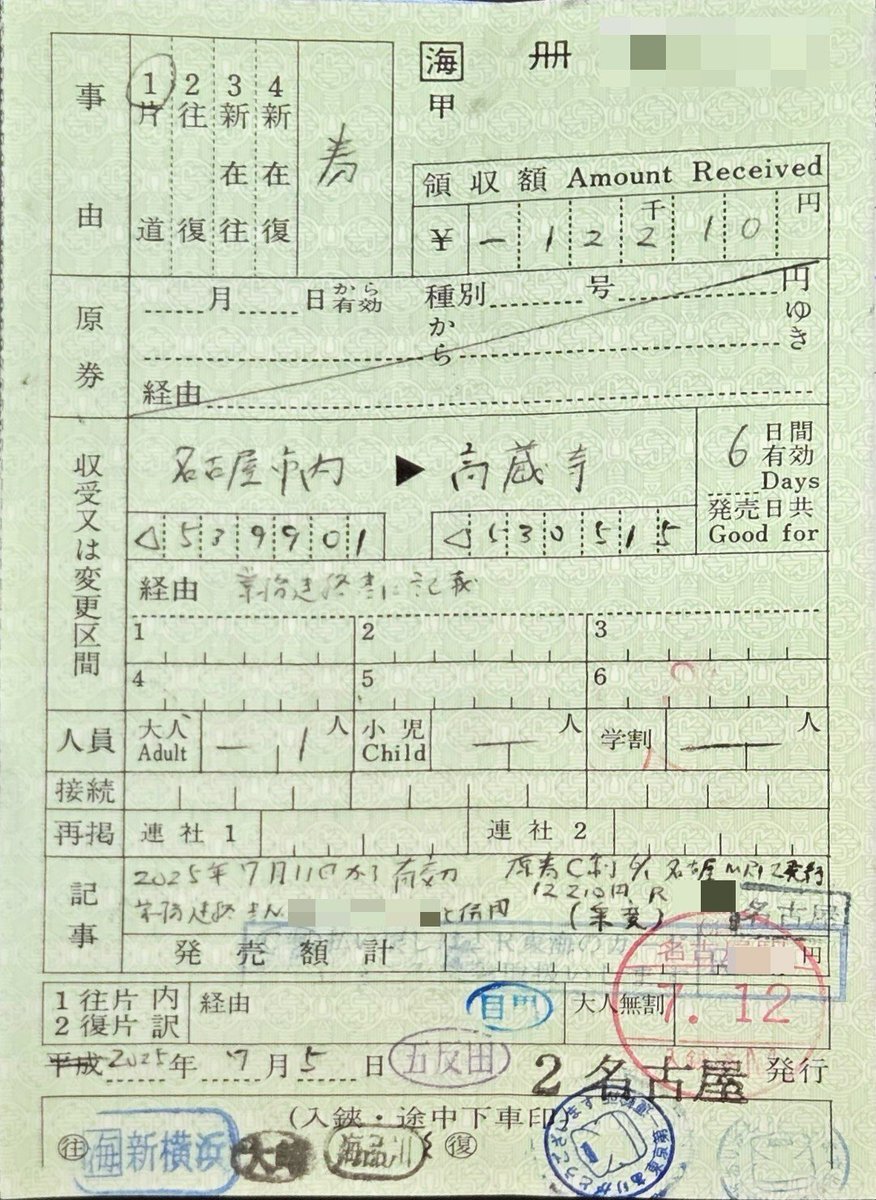 海 冊
甲
事由
1片道 2往復 3新在往 4新在復
領収額 Amount Received
¥ - 1 2 千2 1 0 円
原券
月 日から有効 種別 号 円
から ゆき
経由
収受又は変更区間
名古屋市内 ▶ 高蔵寺
6日間有効 Days
発売日共 Good for
◁539901 ◁530515
経由
に記載
1 2 3
4 5 6
人員 大人 Adult 1人 小児 Child 人 学割 人
接続
再掲 連社1 連社2
記事
2025年7月11日から有効 名古屋
12210円
(乗変) 名古屋
発売額計 円
1往片内
2復片訳
経由 目黒 大人無割
7.12
平成 2025年 7月 5日 五反田 2名古屋 発行
(入鋏・途中下車印)
往 海新横浜 大崎 海品川 復